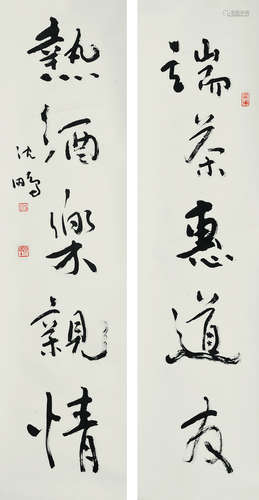 端茶惠道友
熱酒樂親情
沈鵬